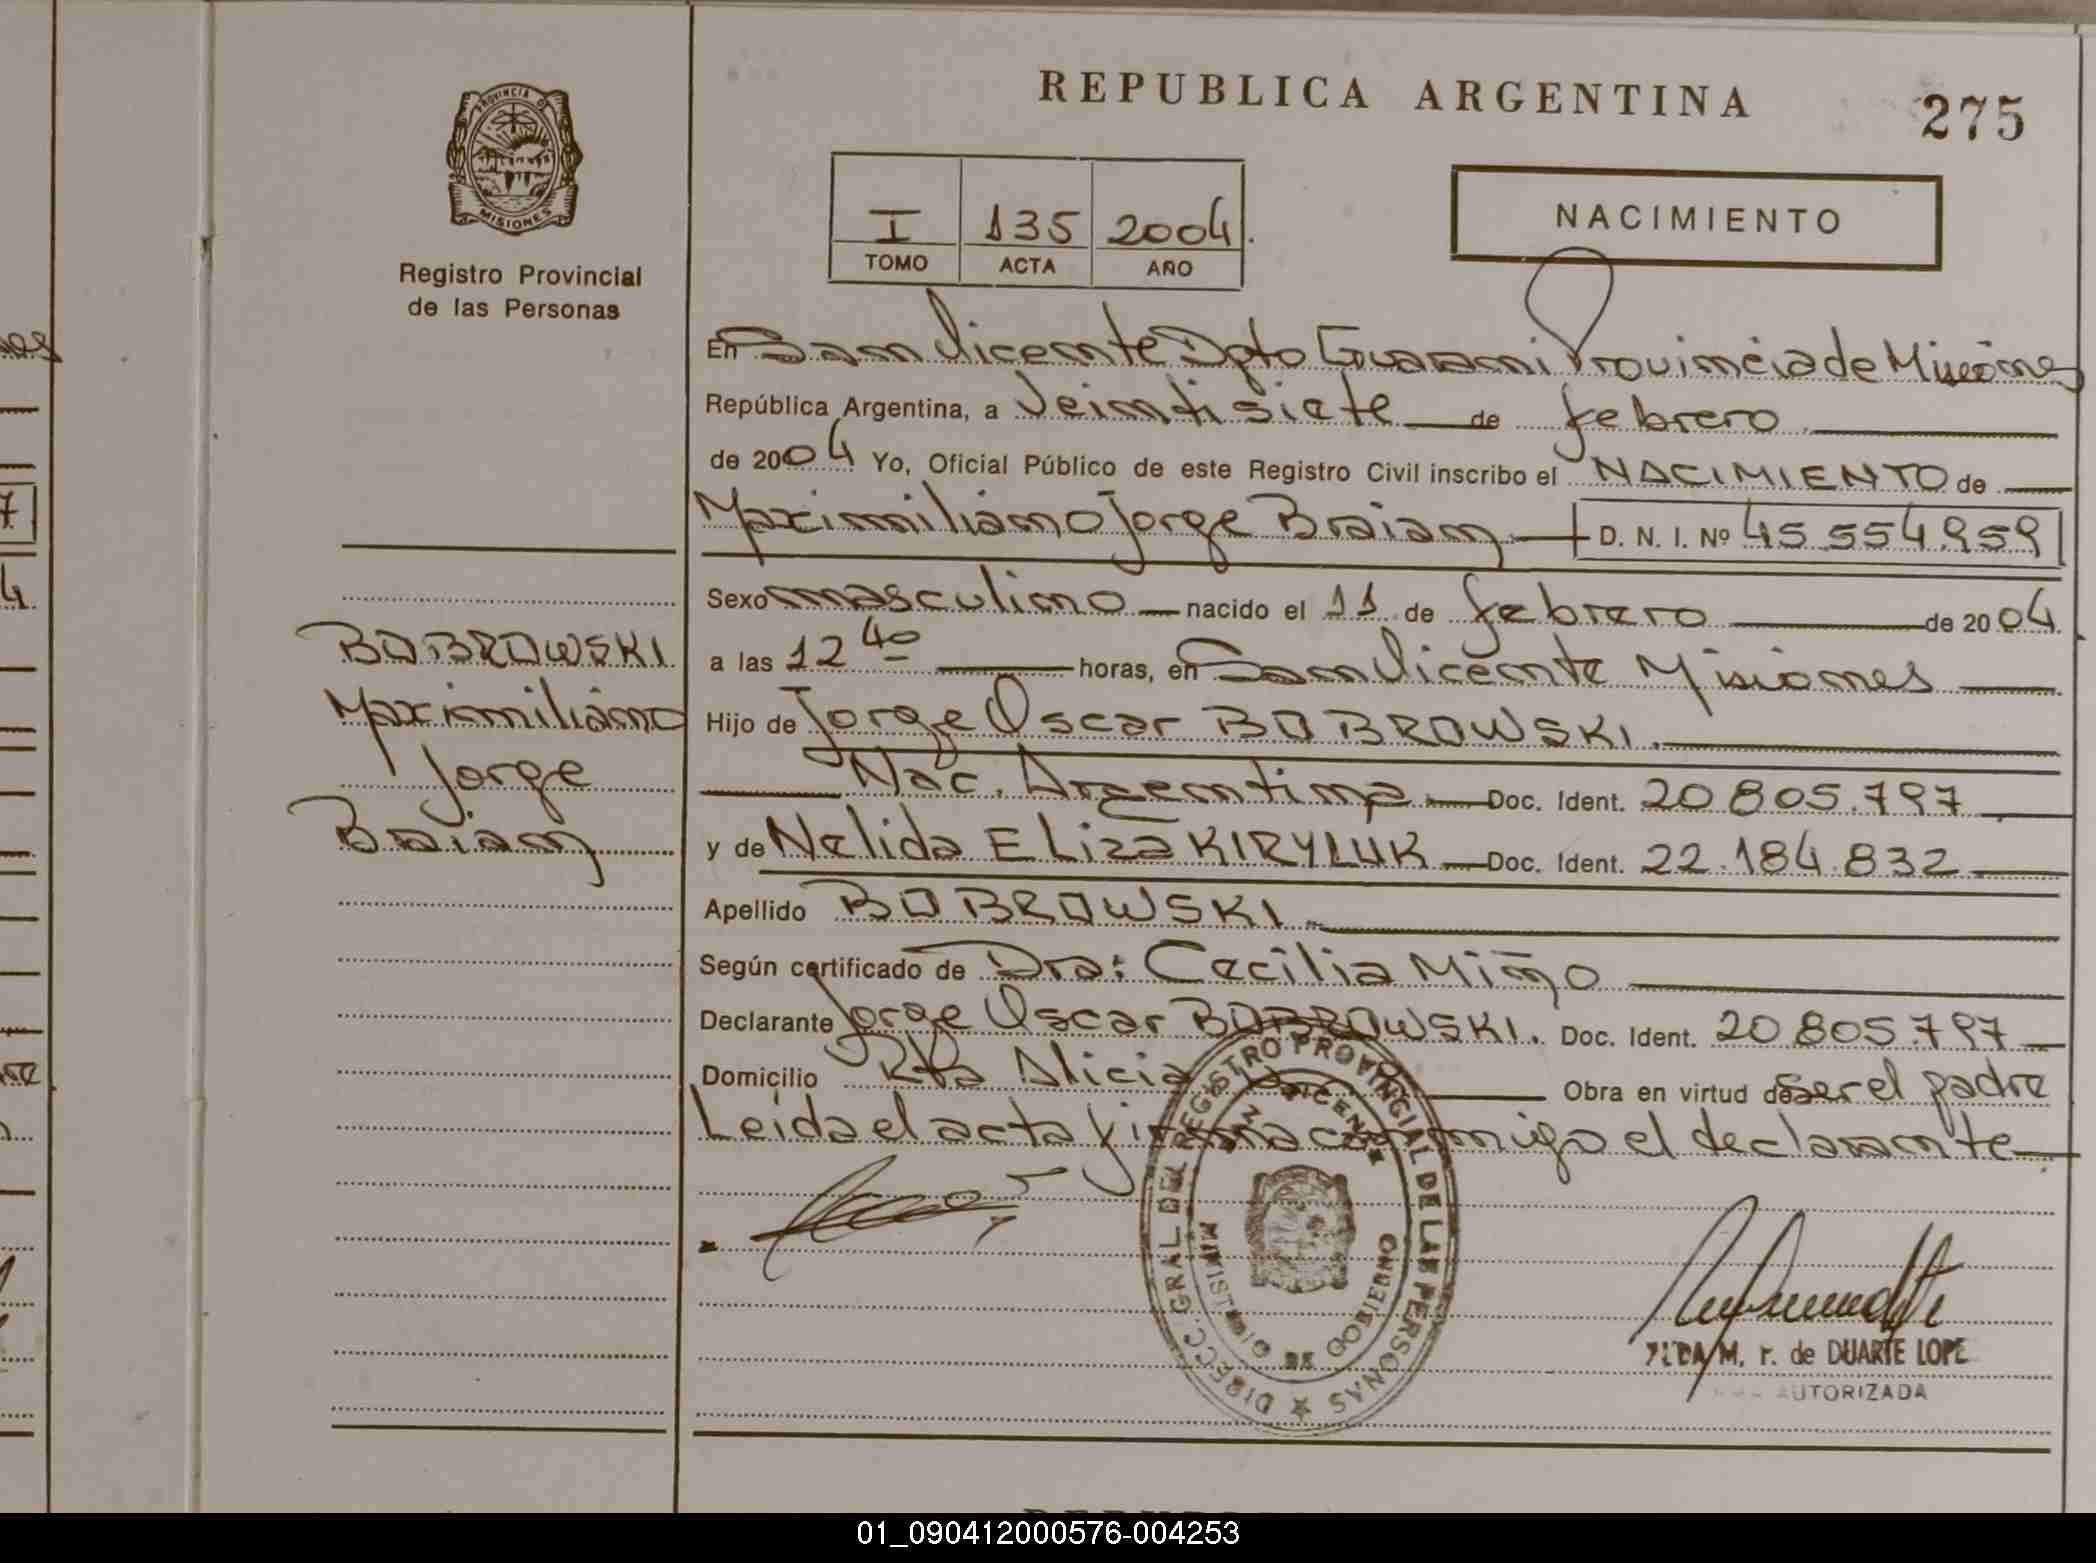 PROVINCIA D
MISIONES
Registro Provincial
de las Personas
BOBROWSKI
Maximiliano
Jorge
Braian
REPUBLICA ARGENTINA
275
I 135 2004.
TOMO ACTA AÑO
NACIMIENTO
En San Vicente Dpto Guarani Provincia de Misiones
República Argentina, a Veintisiete de febrero
de 2004 Yo, Oficial Público de este Registro Civil inscribo el NACIMIENTO de
Maximiliano Jorge Braian D. N. I. Nº 45.554.959
Sexo masculino nacido el 11 de febrero de 2004
a las 12 40 horas, en San Vicente Misiones
Hijo de Jorge Oscar BOBROWSKI.
Nac. Argentina Doc. Ident. 20.805.797
y de Nelida Eliza KIRYLUK Doc. Ident. 22.184.832
Apellido BOBROWSKI
Según certificado de Dra: Cecilia Miño
Declarante Jorge Oscar BOBROWSKI. Doc. Ident. 20.805.797
Domicilio Pto Alicia Obra en virtud de Ser el padre
Leida el acta firma conmigo el declarante
DIRECC. GRAL. DEL REGISTRO PROVINCIAL DE LAS PERSONAS
SAN VICENTE
MINISTERIO DE GOBIERNO
M. r. de DUARTE LOPE
AUTORIZADA
01_090412000576-004253